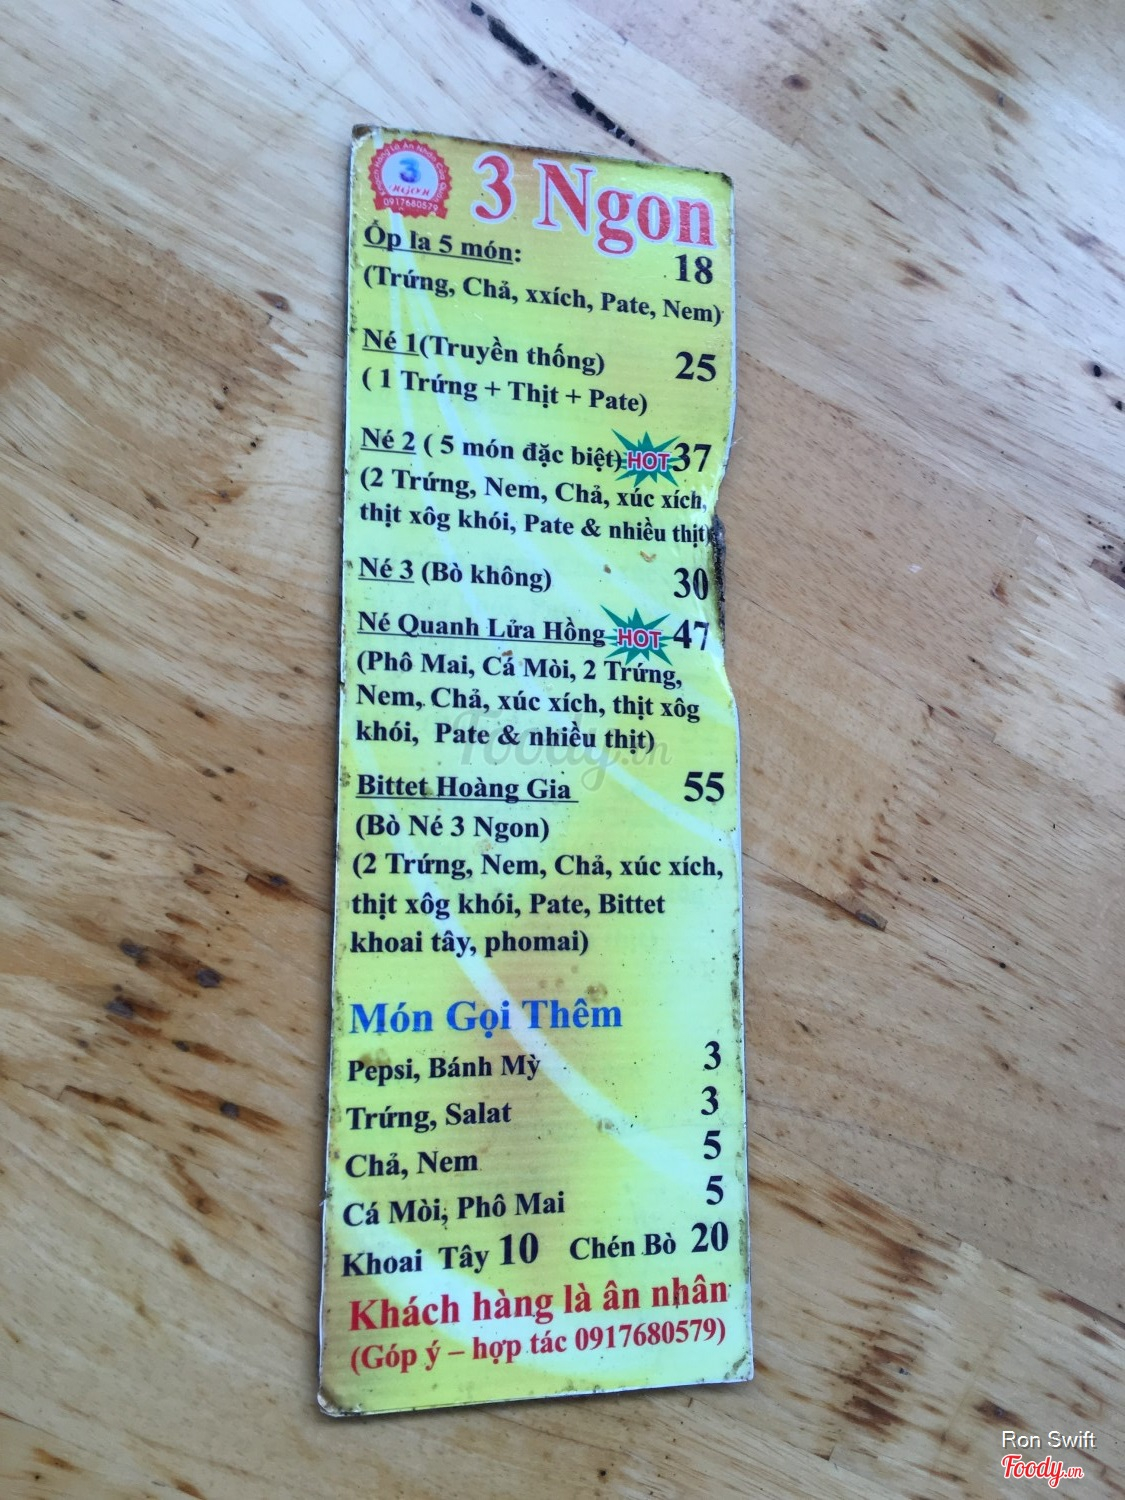 3 Ngon
Khách Hàng Là Ân Nhân Của Quán
3
NGON
0917680579
Ốp la 5 món: 18
(Trứng, Chả, xxích, Pate, Nem)
Né 1(Truyền thống) 25
( 1 Trứng + Thịt + Pate)
Né 2 ( 5 món đặc biệt) HOT 37
(2 Trứng, Nem, Chả, xúc xích,
thịt xôg khói, Pate & nhiều thịt)
Né 3 (Bò không) 30
Né Quanh Lửa Hồng HOT 47
(Phô Mai, Cá Mòi, 2 Trứng,
Nem, Chả, xúc xích, thịt xôg
khói, Pate & nhiều thịt)
Bittet Hoàng Gia 55
(Bò Né 3 Ngon)
(2 Trứng, Nem, Chả, xúc xích,
thịt xôg khói, Pate, Bittet
khoai tây, phomai)
Món Gọi Thêm
Pepsi, Bánh Mỳ 3
Trứng, Salat 3
Chả, Nem 5
Cá Mòi, Phô Mai 5
Khoai Tây 10 Chén Bò 20
Khách hàng là ân nhân
(Góp ý – hợp tác 0917680579)
Foody.vn
Ron Swift
Foody.vn